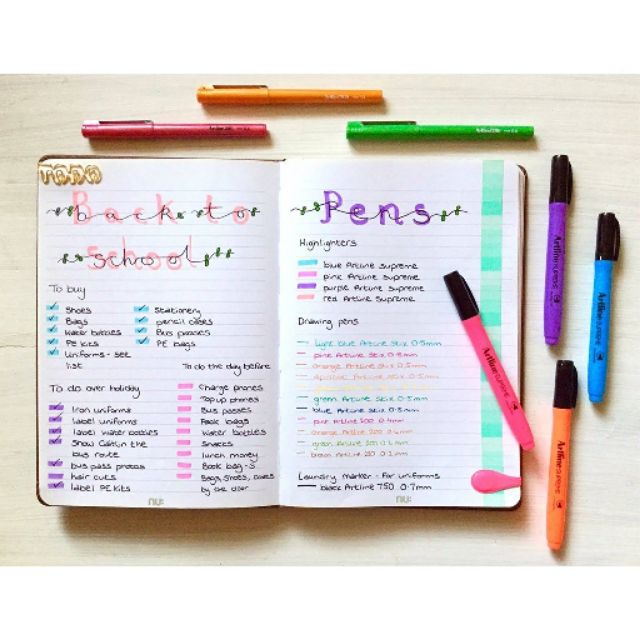 TODO
Back to
school
To buy
Shoes
Bags
Water bottles
PE kits
Uniforms - see
list
Stationery
pencil cases
Bus passes
PE bags
To do over holiday
Iron uniforms
label uniforms
label water bottles
Show Caitlin the
bus route
bus pass photos
hair cuts
label PE kits
To do the day before
Charge phones
Top up phones
Bus passes
Pack bags
Water bottles
Snacks
lunch money
Book bag - S
Bags, shoes, coats
by the door
nu:
Pens
Highlighters
blue Artline Supreme
pink Artline Supreme
purple Artline Supreme
red Artline Supreme
Drawing pens
light blue Artline Stix 0.5mm
pink Artline Stix 0.5mm
orange Artline Stix 0.5mm
Artline Stix 0.5mm
green Artline Stix 0.5mm
blue Artline Stix 0.5mm
pink Artline 200 0.4mm
orange Artline 200 0.4mm
green Artline 200 0.4mm
brown Artline
Laundry marker - for uniforms
black Artline 750 0.7mm
nu:
Artline SUPREME
Artline SUPREME
Artline SUPREME
Artline SUPREME